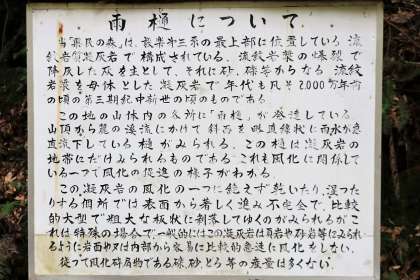 雨樋について
当「県民の森」は、設楽第三系の最上部に位置している流紋
岩質凝灰岩で構成されている。流紋岩漿の爆裂で
降灰した灰を主として、それに砂、礫等からなる流紋
岩漿を母体とした凝灰岩で年代も凡そ2,000万年前
の頃の第三期紀中新世の頃のものである。
この地の山体内の各所に「雨樋」が発達している
山頂から麓の渓流にかけて斜面を略直線状に雨水が急
直流下している樋がみられる。この樋は凝灰岩の
地帯にだけみられるものである これも風化に関係して
いる一つで風化の促進の様子がわかる。
この凝灰岩の風化の一つに絶えず乾いたり、湿った
りする個所では表面から著しく進み不完全で、比較
的大型で粗大な板状に剥落してゆくのがみられるがこ
れは特殊の場合で、一般的にはこの凝灰岩は頁岩や砂岩等にみられ
るように岩面や又は内部から容易に比較的急速に風化をしない。
従って風化砕屑物である礫、砂とろ等の産量は多くない。